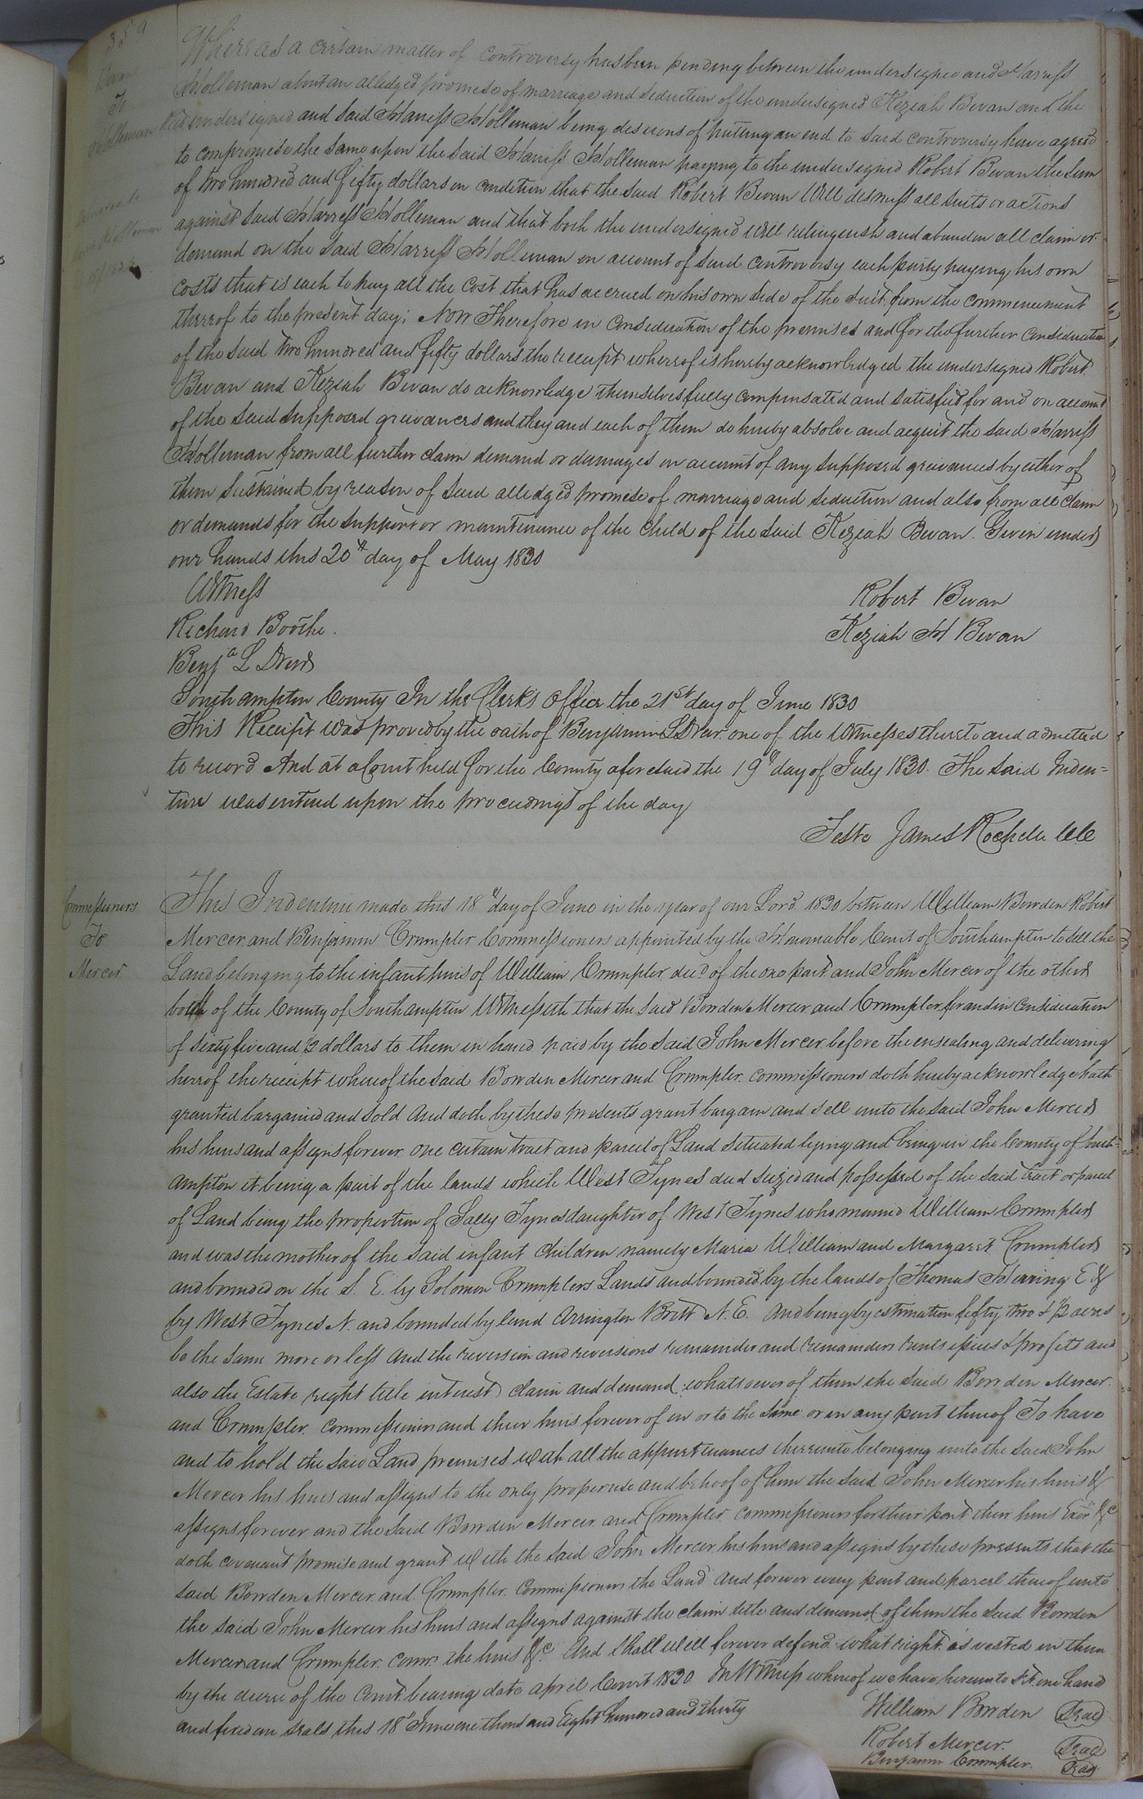 359
Bevan
To
Holleman
Whereas a certain matter of controversy has been pending between the undersigned and Harress
Holleman about an alledged promise of marriage and seduction of the undersigned Keziah Bevan and the
undersigned and said Harress Holleman being desirous of putting an end to said controversy have agreed
to compromise the same upon the said Harress Holleman paying to the undersigned Robert Bevan the sum
of two hundred and fifty dollars on condition that the said Robert Bevan will dismiss all suits or actions
against said Harress Holleman and that both the undersigned will relinquish and abandon all claim or
demand on the said Harress Holleman on account of said controversy each party paying his own
costs that is each to pay all the cost that has accrued on his own side of the suit from the commencement
thereof to the present day; Now Therefore in consideration of the premises and for the further consideration
of the said two hundred and fifty dollars the receipt whereof is hereby acknowledged the undersigned Robert
Bevan and Keziah Bevan do acknowledge themselves fully compensated and satisfied for and on account
of the said supposed greivances and they and each of them do hereby absolve and acquit the said Harress
Holleman from all further claim demand or damages on account of any supposed greivances by either of
them sustained by reason of said alledged promise of marriage and seduction and also from all claim
or demands for the support or maintenance of the child of the said Keziah Bevan. Given under
our hands this 20th day of May 1830
Witness
Robert Bevan
Richard Boothe.
Keziah H Bevan
Benja L Drew
Southampton County In the Clerks Office the 21st day of June 1830
This Receipt was proved by the oath of Benjamin L Drew one of the witnesses thereto and admitted
to record And at a Court held for the County aforesaid the 19th day of July 1830. The said Inden=
ture was entered upon the proceedings of the day
Teste James Rochelle ClC
Commissioners
To
Mercer
This Indenture made this 18th day of June in the year of our Lord 1830 between William Bowden Robert
Mercer and Benjamin Crumpler Commissioners appointed by the Honorable Court of Southampton to sell the
Land belonging to the infant heirs of William Crumpler decd of the one part and John Mercer of the other
both of the County of Southampton Witnesseth that the said Bowden Mercer and Crumpler for and in consideration
of sixty five and 1/2 dollars to them in hand paid by the said John Mercer before the ensealing and delivering
hereof the receipt whereof the said Bowden Mercer and Crumpler commissioners doth hereby acknowledge hath
granted bargained and sold and doth by these presents grant bargain and sell unto the said John Mercer
his heirs and assigns forever one certain tract and parcel of Land situated lying and being in the County of South-
ampton it being a part of the lands which West Tynes died seized and possessed of the said tract or parcel
of Land being the proportion of Sally Tynes daughter of West Tynes who married William Crumpler
and was the mother of the said infant children namely Maria William and Margaret Crumpler
and bounded on the S. E. by Solomon Crumplers Lands and bounded by the lands of Thomas Hearing E &
by West Tynes N. and bounded by land Arrington Britt N. E. And being by estimation fifty two & 1/2 acres
be the same more or less and the reversion and reversions remainder and remainders rents issues & profits and
also the Estate right title interest claim and demand whatsoever of them the said Bowden Mercer
and Crumpler commissioners and their heirs forever of in or to the same or in any part thereof To have
and to hold the said Land premises with all the appurtenances thereunto belonging unto the said John
Mercer his heirs and assigns to the only proper use and behoof of him the said John Mercer his heirs &
assigns forever and the said Bowden Mercer and Crumpler commissioners for their part their heirs Exrs &c
doth covenant promise and grant with the said John Mercer his heirs and assigns by these presents that the
said Bowden Mercer and Crumpler Commissioners the Land and forever every part and parcel thereof unto
the said John Mercer his heirs and assigns against the claim title and demand of them the said Bowden
Mercer and Crumpler comrs the heirs &c. And shall will forever defend what right is vested in them
by the decree of the Court bearing date April Court 1830 In Witness whereof we have hereunto set our hand
and fixed our seals this 18th June one thous and Eight hundred and thirty
William Bowden Seal
Robert Mercer. Seal
Benjamin Crumpler. Seal